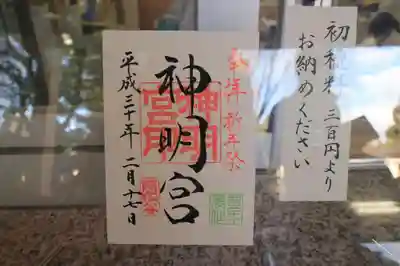 初穂料 三百円より
お納めください
奉拝 祈年祭
神明宮
平成三十年 二月十七日